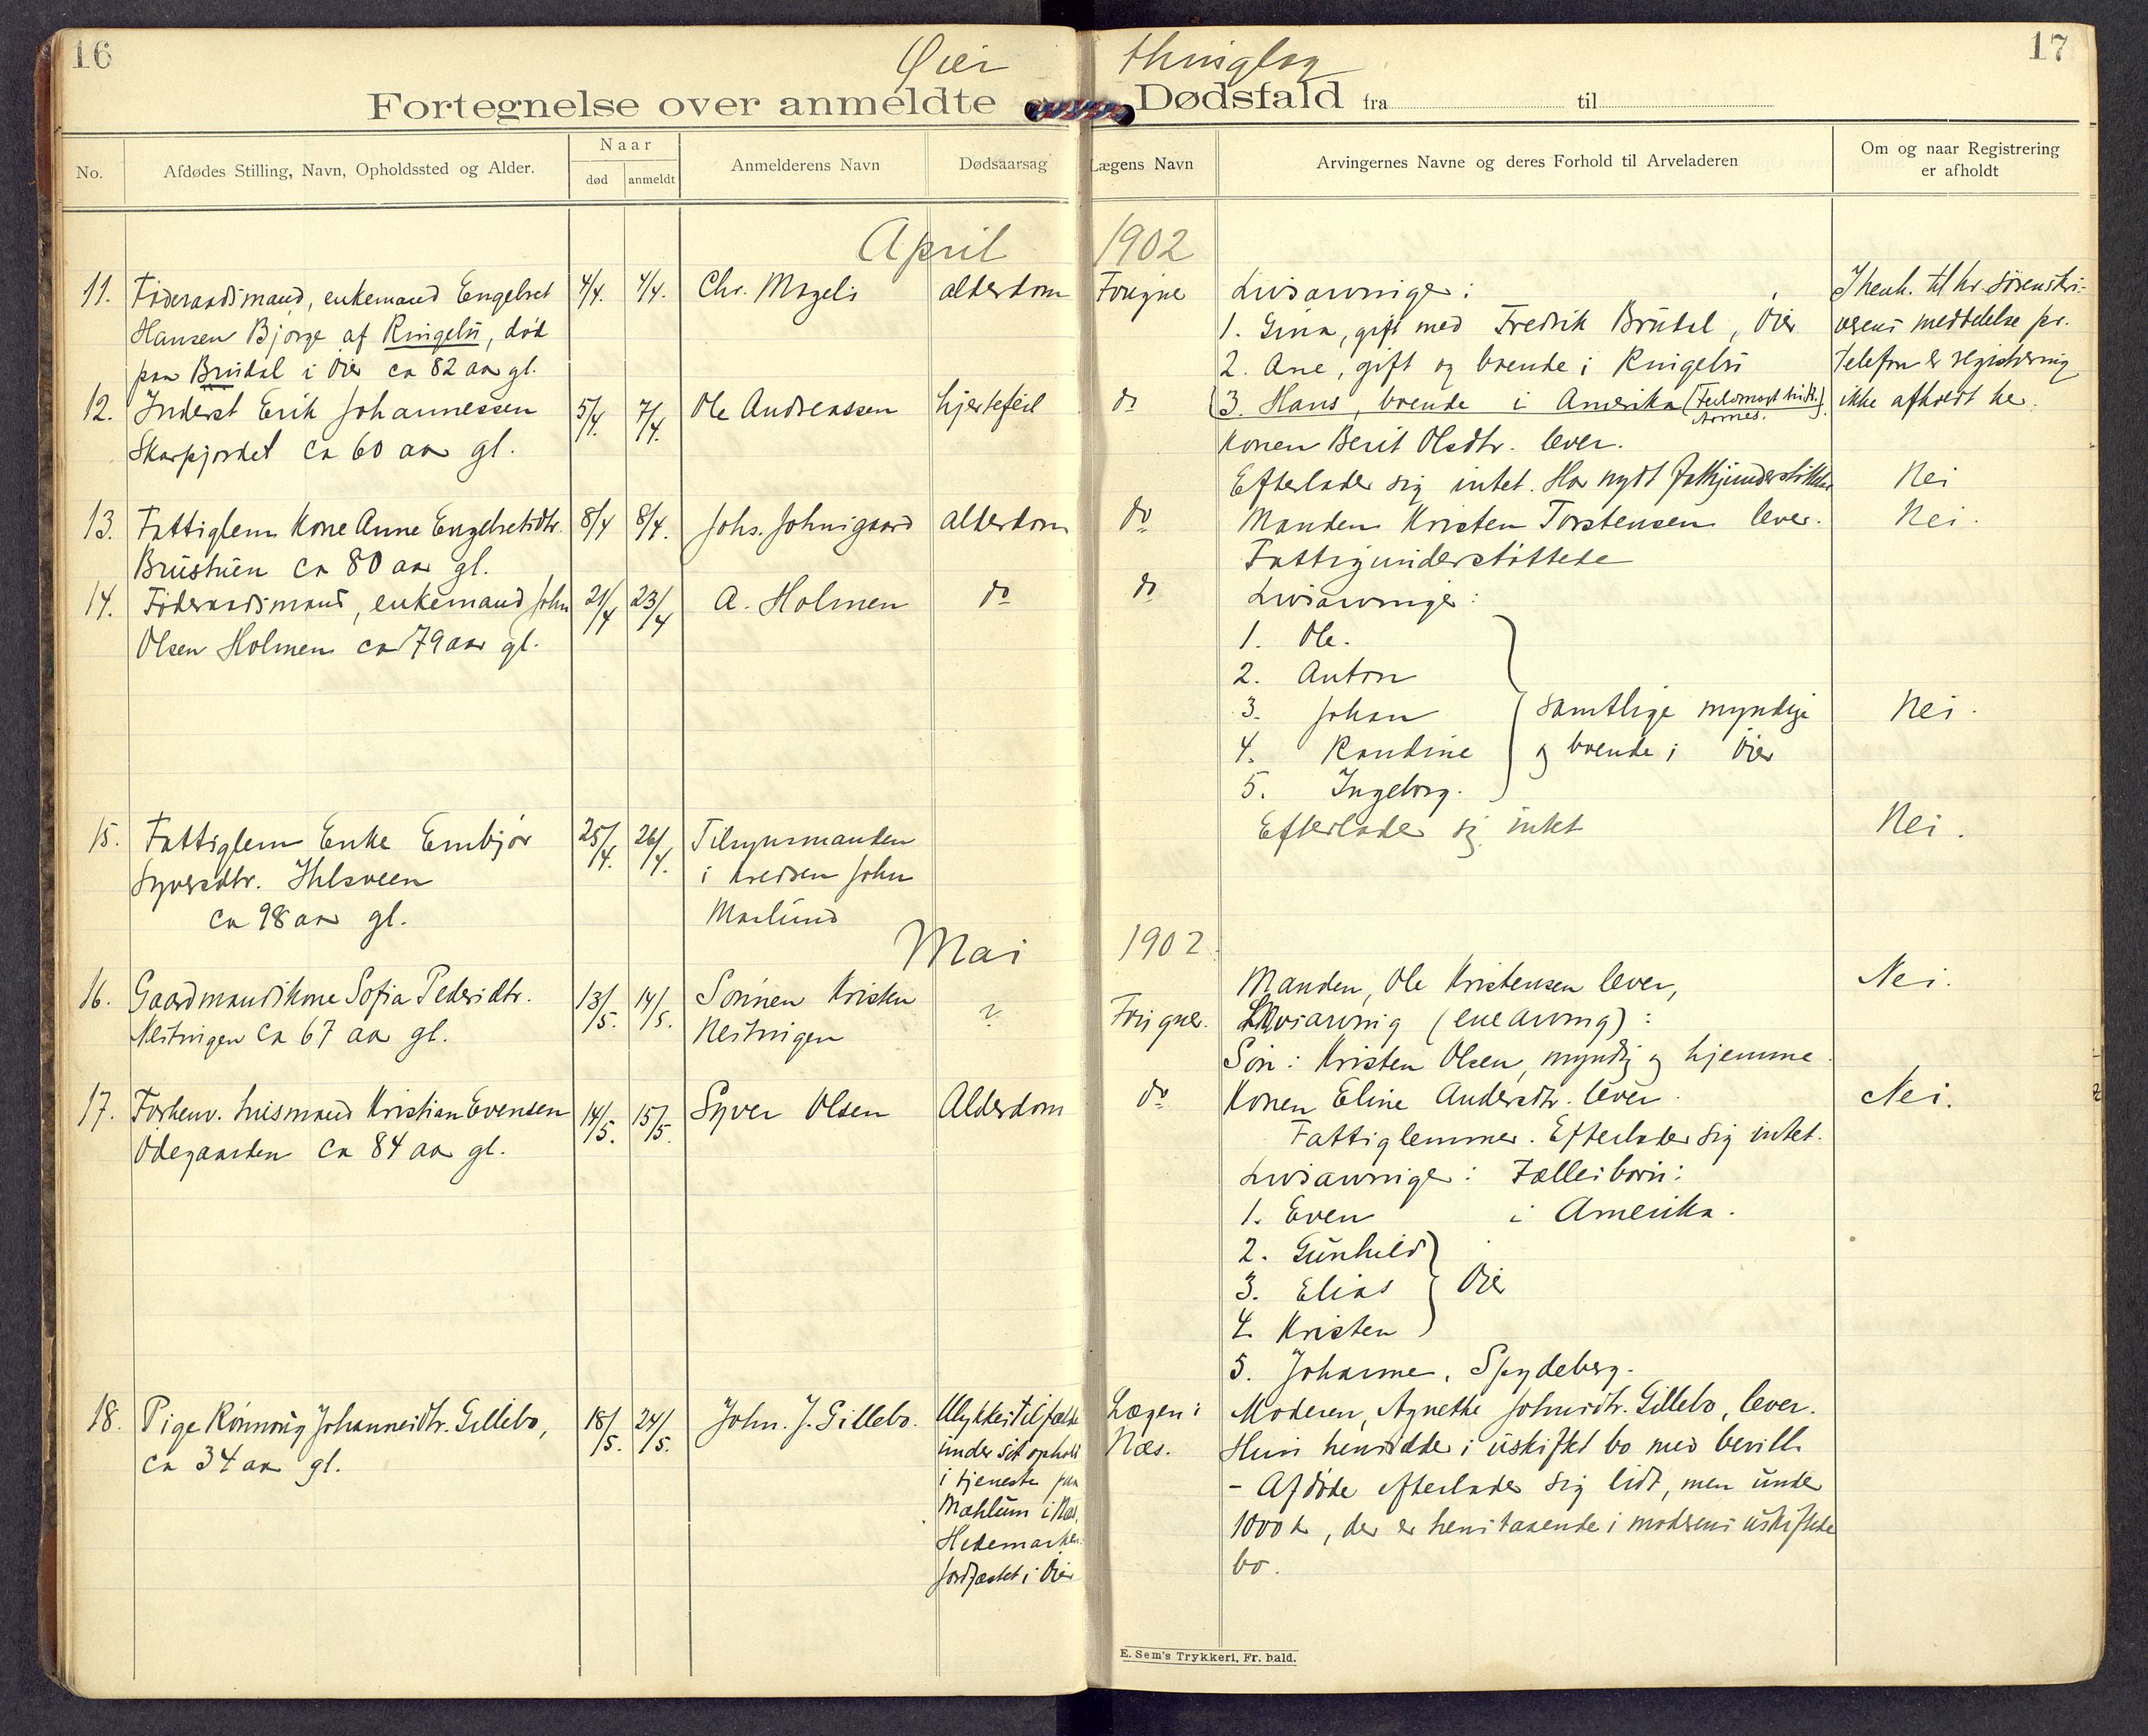 16
Øier thinglag
17
Fortegnelse over anmeldte Dødsfald fra til
No.
Afdødes Stilling, Navn, Opholdssted og Alder.
Naar
død
anmeldt
Anmelderens Navn
Dødsaarsag
Lægens Navn
Arvingernes Navne og deres Forhold til Arveladeren
Om og naar Registrering
er afholdt
April 1902
11. Føderaadsmand, enkemand Engebret
Hansen Bjørge af Ringebu, død
paa Brudal i Øier ca 82 aar gl.
4/4. 4/4.
Chr.
alderdom
Livsarvinger:
1. Gina, gift med Fredrik Brudal, Øier
2. Ane, gift og boende i Ringebu
3. Hans, boende i Amerika
I henh. til hr. sorenskri-
verens meddelelse pr.
telefon er registrering
ikke afholdt her.
12. Inderst Erik Johannessen
Skarpjordet ca 60 aar gl.
5/4. 7/4.
Ole Andreassen
hjertefeil
do
Konen Berit Olsdtr. lever.
Efterlader sig intet. Har nydt
Nei
13. Fattiglem Kone Anne Engebretsdtr.
Brustuen ca 80 aar gl.
8/4 8/4.
Johs. Johnsgaard
Alderdom
do
Manden Kristen Torstensen lever.
Fattigunderstøttede
Nei.
14. Føderaadsmand, enkemand John
Olsen Holmen ca 79 aar gl.
21/4 23/4
A. Holmen
do
do
Livsarvinger:
1. Ole.
2. Anton
3. Johan
4. Randine
5. Ingeborg.
samtlige myndige
og boende i Øier
Nei.
15. Fattiglem Enke Embjør
Syversdtr. Ihlsveen
ca 98 aar gl.
25/4. 26/4.
Tilsynsmanden
i kredsen John
Marlund
Efterlader sig intet
Nei.
Mai 1902.
16. Gaardmandskone Sofia Pedersdtr.
Nestingen ca 67 aar gl.
13/5. 14/5.
Sønnen Kristen
Nestingen
?
Manden, Ole Kristensen lever,
Livsarving (enearving):
Søn: Kristen Olsen, myndig og hjemme.
Nei.
17. Forhenv. husmand Kristian Evensen
Ødegaarden ca 84 aar gl.
14/5. 15/5.
Syver Olsen
Alderdom
do
Konen Eline Andersdtr. lever.
Fattiglemmer. Efterlader sig intet.
Livsarvinger: Fællesbørn:
1. Even i Amerika.
2. Gunhild
3. Elias
4. Kristen
Øier
5. Johanne, Spydeberg.
Nei.
18. Pige Rønnoug Johannesdtr. Gillebo,
ca 34 aar gl.
18/5. 24/5.
John. J. Gillebo.
Ulykkestilfælde
under sit ophold
i tjeneste paa
Mæhlum i Næs,
Hedemarken.
Jordfæstet i Øier
Lægen i
Næs.
Moderen, Agnethe Johnsdtr. Gillebo, lever.
Hun hensidder i uskiftet bo med bevill.
- Afdøde efterlader sig lidt, men under
1000 kr, der er henstaaende i moderens uskiftede
bo.
E. Sem's Trykkeri, Fr.hald.